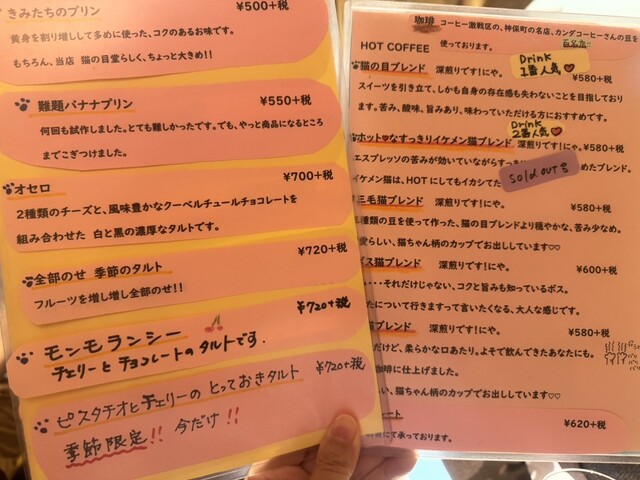 きみたちのプリン ¥500+税
黄身を割り増しして多めに使った、コクのあるお味です。
もちろん、当店 猫の目堂らしく、ちょっと大きめ!!
難題バナナプリン ¥550+税
何回も試作しました。とても難しかったです。でも、やっと商品になるところ
までこぎつけました。
オセロ ¥700+税
2種類のチーズと、風味豊かなクーベルチュールチョコレートを
組み合わせた 白と黒の濃厚なタルトです。
全部のせ 季節のタルト ¥720+税
フルーツを増し増し全部のせ!!
モンモランシー ¥720+税
チェリーとチョコレートのタルトです.
ピスタチオとチェリーの とっておきタルト ¥720+税
季節限定!! 今だけ!!
珈琲 コーヒー激戦区の、神保町の名店、カンダコーヒーさんの豆を
HOT COFFEE 使っております。
Drink
1番人気
猫の目ブレンド 深煎りです!にや。 ¥580+税
スイーツを引き立て、しかも自身の存在感も失わないことを目指しており
ます。苦み、酸味、旨みあり、味わっていただける方におすすめです。
Drink
2番人気
ホット♥なすっきりイケメン猫ブレンド 深煎りです!にゃ。 ¥580+税
エスプレッソの苦みが効いていながらすっ
めたブレンド。
Sold OUT
イケメン猫は、HOTにしてもイカシてた
三毛猫ブレンド 深煎りです!にゃ。 ¥580+税
種類の豆を使って作った、猫の目ブレンドより穏やかな、苦み少なめ
愛らしい、猫ちゃん柄のカップでお出ししています♡♡
ボス猫ブレンド 深煎りです!にや。 ¥600+税
・・・それだけじゃない、コクと旨みも知っているボス。
たについて行きますって言いたくなる、大人な感じです。
ブレンド 深煎りです!にや。 ¥580+税
だけど、柔らかな口あたり。よそで飲んできたあなたにも。
珈琲に仕上げました。
い、猫ちゃん柄のカップでお出ししています♡♡
ート ¥620+税
にて承っております。